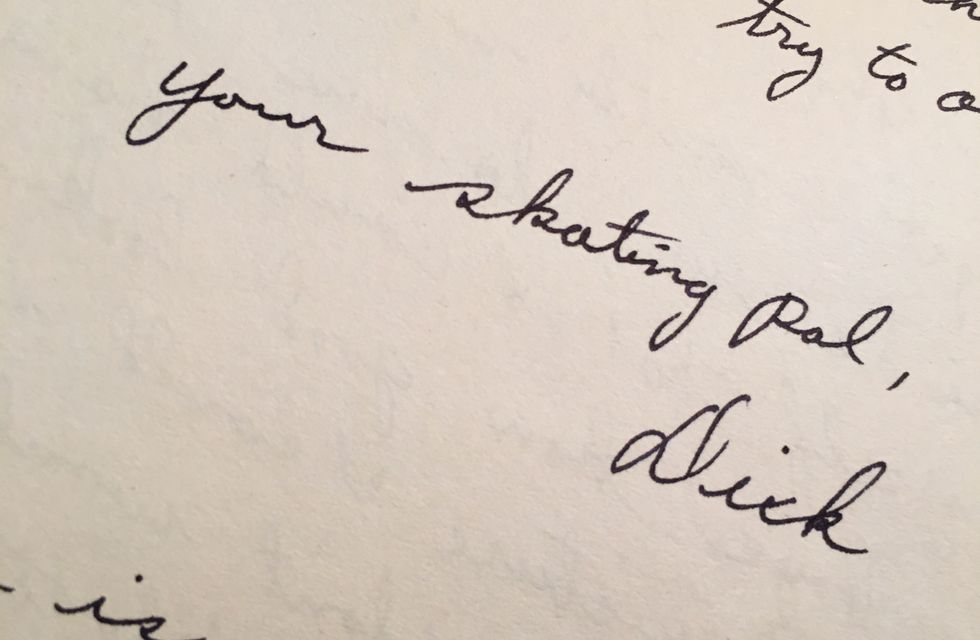 try to
your skating Pal,
Nick
is